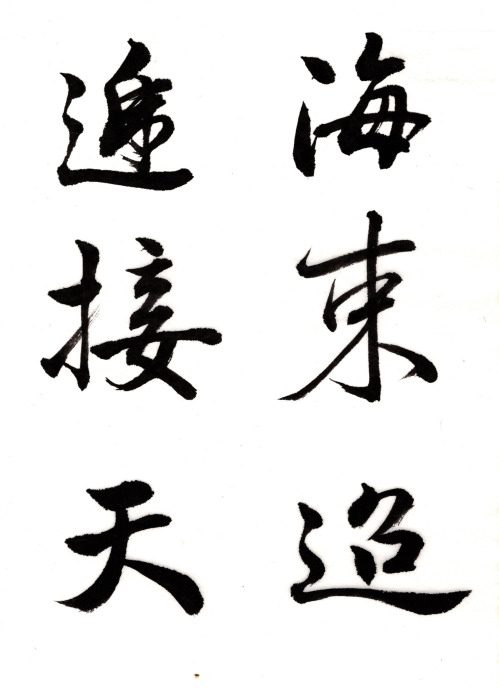 海東迢
遞接天